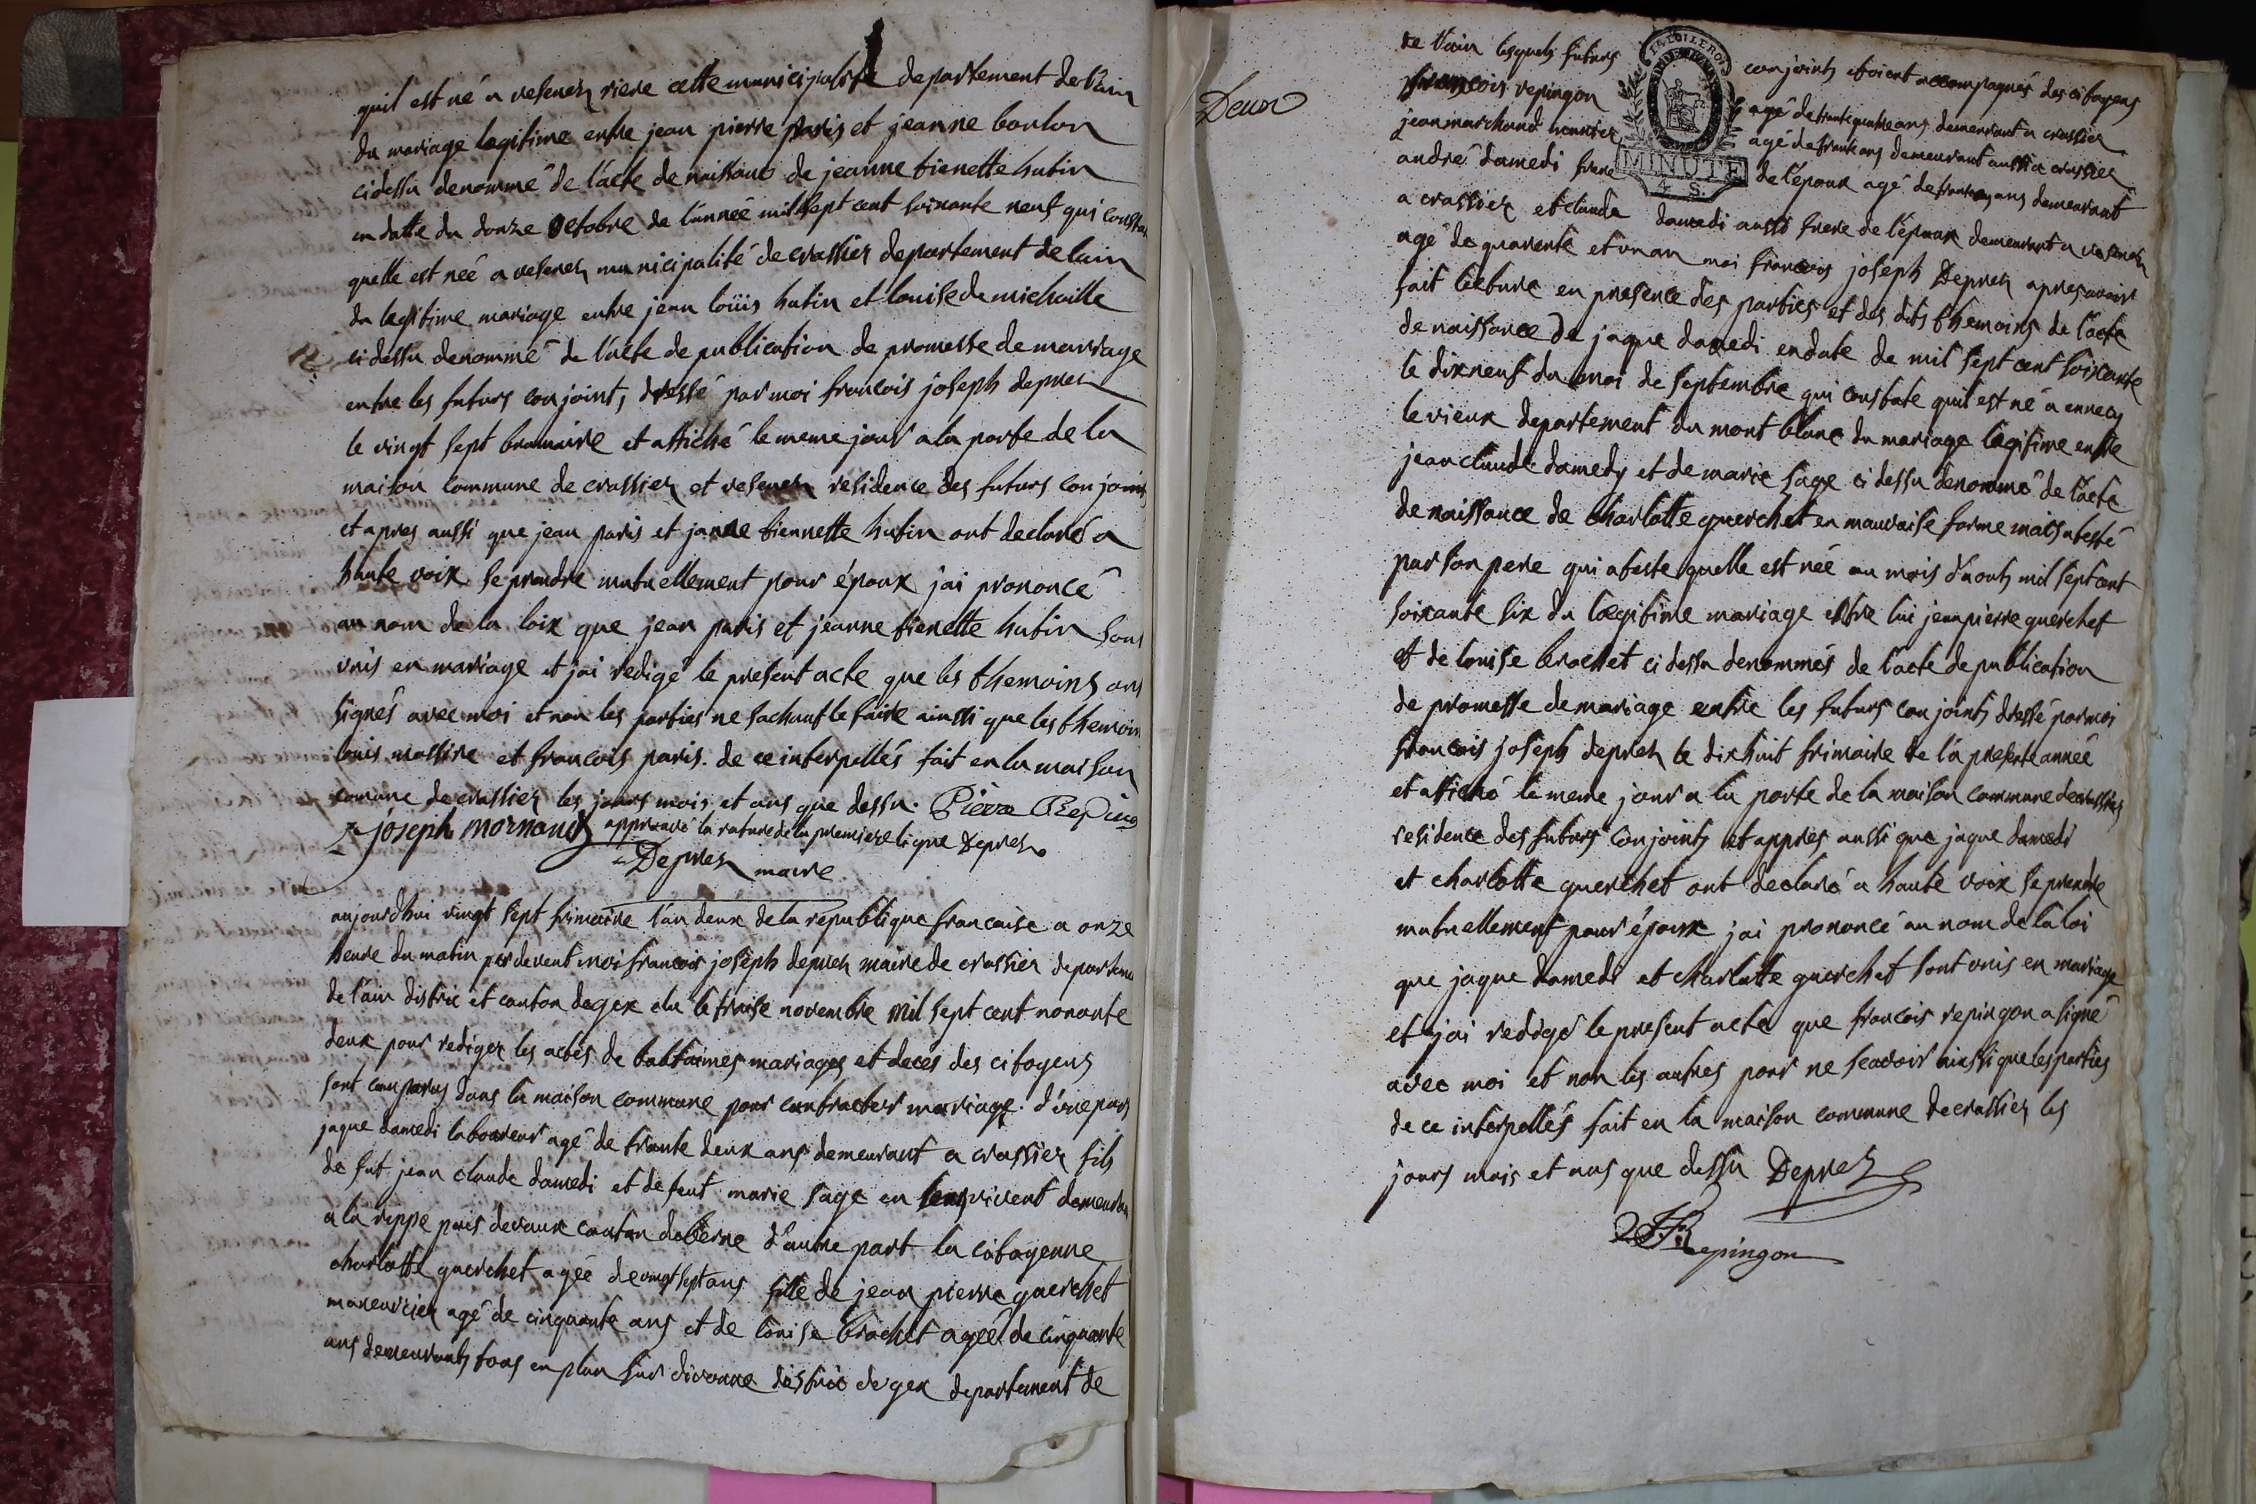 quil est né a vesenex riere cette municipalité departement de l'ain
du mariage legitime entre jean pierre paris et jeanne bonlon
ci dessu denommé de l'acte de naissance de jeanne tienette hutin
en datte du douze octobre de l'année mil sept cent soixante neuf qui consta
quelle est neé a vesenex municipalité de crassier departement de lain
du legitime mariage entre jean loüis hutin et louise de michaille
ci dessu denommé de l'acte de publication de promesse de mariage
entre les futurs conjoints dressé par moi francois joseph deprez
le vingt sept brumaire et affiché le meme jour a la porte de la
maison commune de crassier et vesenex residence des futurs conjoins
et apres aussi que jean paris et janne tiennette hutin ont declaré a
haute voix se prendre mutuellement pour époux j'ai prononcé
au nom de la loix que jean paris et jeanne tienette hutin sont
unis en mariage et j'ai redigé le present acte que les themoins ont
signés avec moi et non les parties ne sachant le faire ainssi que les themoin
louis massire et francois paris. de ce interpellés fait en la maison
comune de crassier les jours mois et ans que dessu. Piere Repingon
joseph mornand approuvé la rature de la premiere ligne Deprez
Deprez maire
aujourdhui vingt sept frimaire l'an deux de la republique francaise a onze
heure du matin perdevent moi francois joseph deprez maire de crassier departeme
de l'ain distric et canton de gex elu le traise novembre mil sept cent nonante
deux pour rediger les actes de babtaimes mariages et deces des citoyens
sont comparus dans la maison commune pour contracter mariage. d'une part
jaque damedi laboureur agé de trante deux ans demeurant a crassier fils
de fut jean claude damedi et de feut marie sage en leur vivent demeuran
a la rippe pais devaux canton de berne d'autre part la citoyenne
charlotte querchet ageé de vingt sept ans fille de jean pierre querchet
maneuvrier agé de cinquante ans et de louise brachet ageé de cinquante
ans demeurants tous en plan sur divonne distric de gex departement de
Deux
de l'ain lesquels futurs conjoints etoient accompagnés des citoyens
francois repingon agé de trante quatre ans demeurant a crassier
jean marchand agé de trante ans demeurant aussi a crassier
andré damedi frere de l'epoux agé de ans demeurant
a crassier et claude damedi aussi frere de l'époux demeurant a vesenex
agé de quarente et un an moi francois joseph Deprez apres avoir
fait lecture en presence des parties et des dits themoins de l'acte
de naissance de jaque damedi en date de mil sept cent soixante
le dix neuf du moi de septembre qui constate quil est né a annecy
le vieux departement du mont blanc du mariage legitime entre
jean claude damedy et de marie sage ci dessu denommé de l'acte
de naissance de charlotte querchet en mauvaise forme mais atesté
par son pere qui ateste quelle est neé au mois d'aouts mil sept cent
soixante six du legitime mariage entre lui jean pierre querchet
et de louise brachet ci dessu denommés de l'acte de publication
de promesse de mariage entre les futurs conjoints dressé par moi
francois joseph deprez le dix huit frimaire de la presente année
et affiché le meme jour a la porte de la maison commune de crassier
residence des futurs conjoints et appres aussi que jaque damedi
et charlotte querchet ont declaré a haute voix se prendre
mutuellement pour époux j'ai prononcé au nom de la loi
que jaque damedi et charlotte querchet sont unis en mariage
et j'ai redigé le present acte que francois repingon a signé
avec moi et non les autres pour ne scavoir ainssi que les parties
de ce interpellés fait en la maison commune de crassier les
jours mois et ans que dessu Deprez
F Repingon
MINUTE
4 S.